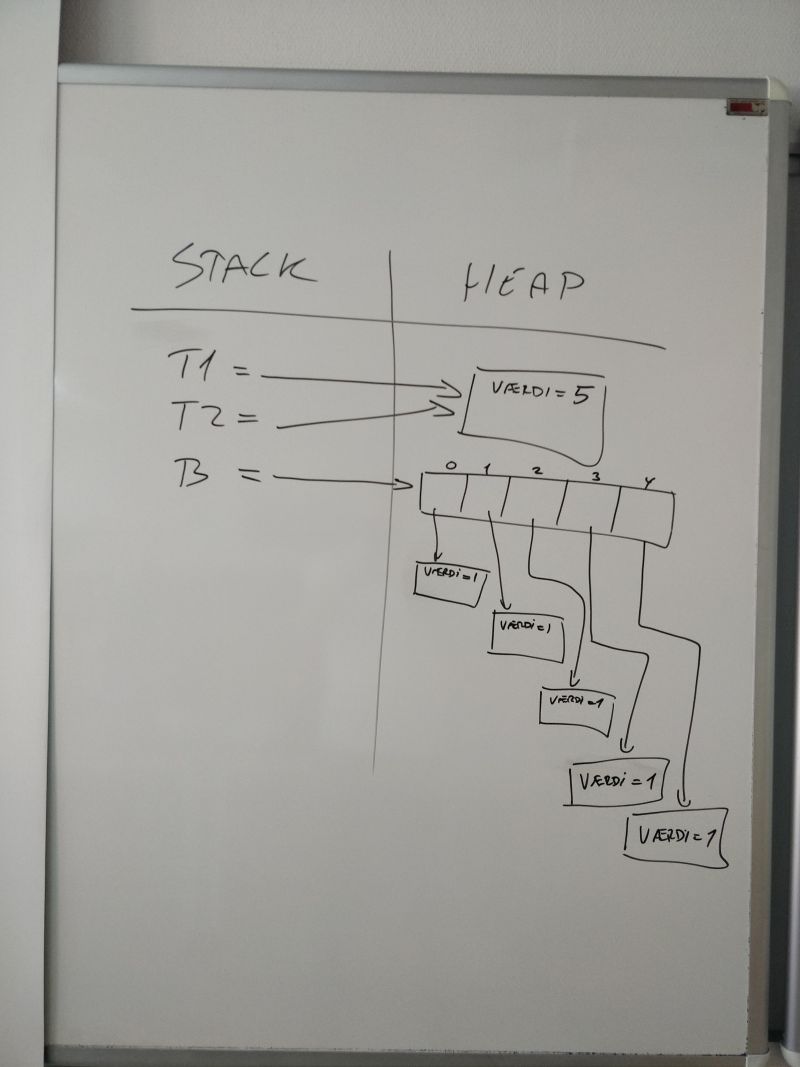 STACK HEAP
T1 =
VÆRDI = 5
T2 =
B =
0 1 2 3 4
VÆRDi = 1
VÆRDi = 1
VÆRDi = 1
VÆRDi = 1
VÆRDi = 1